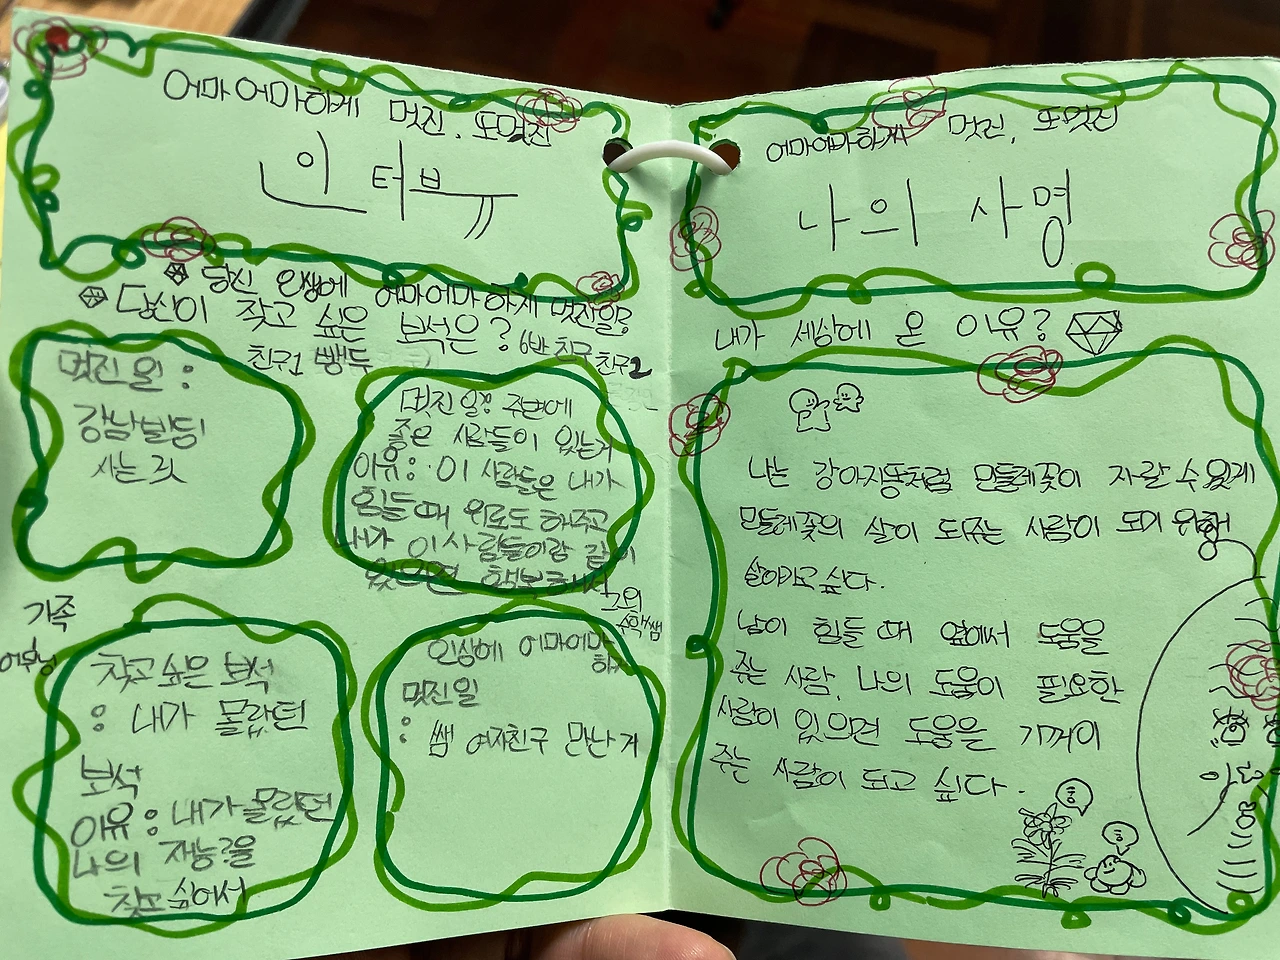 어마어마하게 멋진, 또멋진
인터뷰
당신 인생에 어마어마하게 멋진일?
당신이 찾고 싶은 보석은?
친구1 빵두
멋진일 :
강남빌딩
사는 것
6반 친구 친구2
멋진일? 주변에
좋은 사람들이 있는거
이유: 이 사람들은 내가
힘들때 위로도 해주고
내가 이사람들이랑 같이
있으면 행복해서
가족
어머님
찾고 싶은 보석
: 내가 몰랐던
보석
이유 : 내가몰랐던
나의 재능을
찾고 싶어서
수학쌤
인생에 어마어마
하게
멋진일
: 쌤 여자친구 만난거
어마어마하게 멋진, 또멋진
나의 사명
내가 세상에 온 이유?
나는 강아지똥처럼 민들레꽃이 자랄 수 있게
민들레꽃의 삶이 도와주는 사람이 되기 위해
살아가고 싶다.
남이 힘들 때 옆에서 도움을
주는 사람, 나의 도움이 필요한
사람이 있으면 도움을 기꺼이
주는 사람이 되고 싶다.